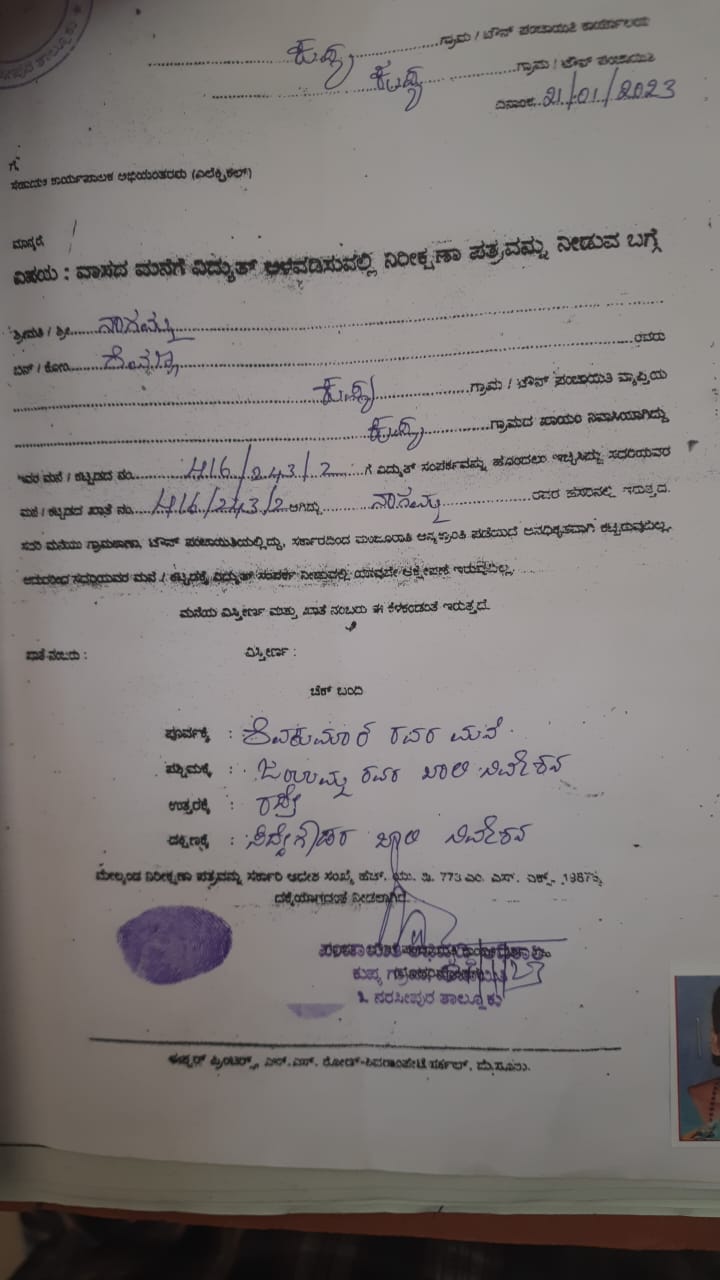 ಸೀಪುರ ತಾಲ್ಲೂಕು
ಕುಪ್ಯ ಗ್ರಾಮ / ಟೌನ್ ಪಂಚಾಯಿತಿ ಕಾರ್ಯಾಲಯ
ಕುಪ್ಯ ಗ್ರಾಮ / ಟೌನ್ ಪಂಚಾಯಿತಿ
ದಿನಾಂಕ 21/01/2023
ಗೆ
ಸಹಾಯಕ ಕಾರ್ಯಪಾಲಕ ಅಭಿಯಂತರರು (ಎಲೆಕ್ಟ್ರಿಕಲ್)
ಮಾನ್ಯರೆ,
ವಿಷಯ : ವಾಸದ ಮನೆಗೆ ವಿದ್ಯುತ್ ಅಳವಡಿಸುವಲ್ಲಿ ನಿರೀಕ್ಷಣಾ ಪತ್ರವನ್ನು ನೀಡುವ ಬಗ್ಗೆ
ಶ್ರೀಮತಿ / ಶ್ರೀ ನಾಗಮ್ಮ
ಬಿನ್ / ಕೋಂ ರವರು
ಕುಪ್ಯ ಗ್ರಾಮ / ಟೌನ್ ಪಂಚಾಯಿತಿ ವ್ಯಾಪ್ತಿಯ
ಕುಪ್ಯ ಗ್ರಾಮದ ಖಾಯಂ ನಿವಾಸಿಯಾಗಿದ್ದು
ಇವರ ಮನೆ / ಕಟ್ಟಡದ ನಂ. 416/243/2 ಗೆ ವಿದ್ಯುತ್ ಸಂಪರ್ಕವನ್ನು ಹೊಂದಲು ಇಚ್ಛಿಸಿದ್ದು ಸದರಿಯವರ
ಮನೆ / ಕಟ್ಟಡದ ಖಾತೆ ನಂ. 416/243/2 ಆಗಿದ್ದು ನಾಗಮ್ಮ ರವರ ಹೆಸರಿನಲ್ಲಿ ಇರುತ್ತದೆ.
ಸದರಿ ಮನೆಯು ಗ್ರಾಮಠಾಣಾ, ಟೌನ್ ಪಂಚಾಯಿತಿಯಲ್ಲಿದ್ದು, ಸರ್ಕಾರದಿಂದ ಮಂಜೂರಾತಿ ಅನ್ಯಕ್ರಾಂತಿ ಪಡೆಯದೆ ಅನಧಿಕೃತವಾಗಿ ಕಟ್ಟಿರುವುದಿಲ್ಲ.
ಆದುದರಿಂದ ಸದರಿಯವರ ಮನೆ / ಕಟ್ಟಡಕ್ಕೆ ವಿದ್ಯುತ್ ಸಂಪರ್ಕ ನೀಡುವಲ್ಲಿ ಯಾವುದೇ ಆಕ್ಷೇಪಣೆ ಇರುವುದಿಲ್ಲ.
ಮನೆಯ ವಿಸ್ತೀರ್ಣ ಮತ್ತು ಖಾತೆ ನಂಬರು ಈ ಕೆಳಕಂಡಂತೆ ಇರುತ್ತದೆ.
ಖಾತೆ ನಂಬರು : ವಿಸ್ತೀರ್ಣ :
ಚೆಕ್ ಬಂದಿ
ಪೂರ್ವಕ್ಕೆ : ಶಿವಕುಮಾರ ರವರ ಮನೆ.
ಪಶ್ಚಿಮಕ್ಕೆ : ಜಯಮ್ಮ ರವರ ಖಾಲಿ ನಿವೇಶನ
ಉತ್ತರಕ್ಕೆ : ರಸ್ತೆ
ದಕ್ಷಿಣಕ್ಕೆ : ಸಿದ್ದೇಗೌಡರ ಖಾಲಿ ನಿವೇಶನ
ಮೇಲ್ಕಂಡ ನಿರೀಕ್ಷಣಾ ಪತ್ರವನ್ನು ಸರ್ಕಾರಿ ಆದೇಶ ಸಂಖ್ಯೆ ಹೆಚ್. ಯು. ಡಿ. 773 ಎಂ. ಎನ್. ಎಕ್ಸ್. 1987ಕ್ಕೆ
ದಕ್ಕೆಯಾಗದಂತೆ ನೀಡಲಾಗಿದೆ.
ಕುಪ್ಯ
ತಿ. ನರಸೀಪುರ ತಾಲ್ಲೂಕು
ಈಶ್ವರ್ ಪ್ರಿಂಟರ್ಸ್, ಎನ್.ಎಸ್. ರೋಡ್-ಶಿವರಾಂಪೇಟೆ ಸರ್ಕಲ್, ಮೈಸೂರು.